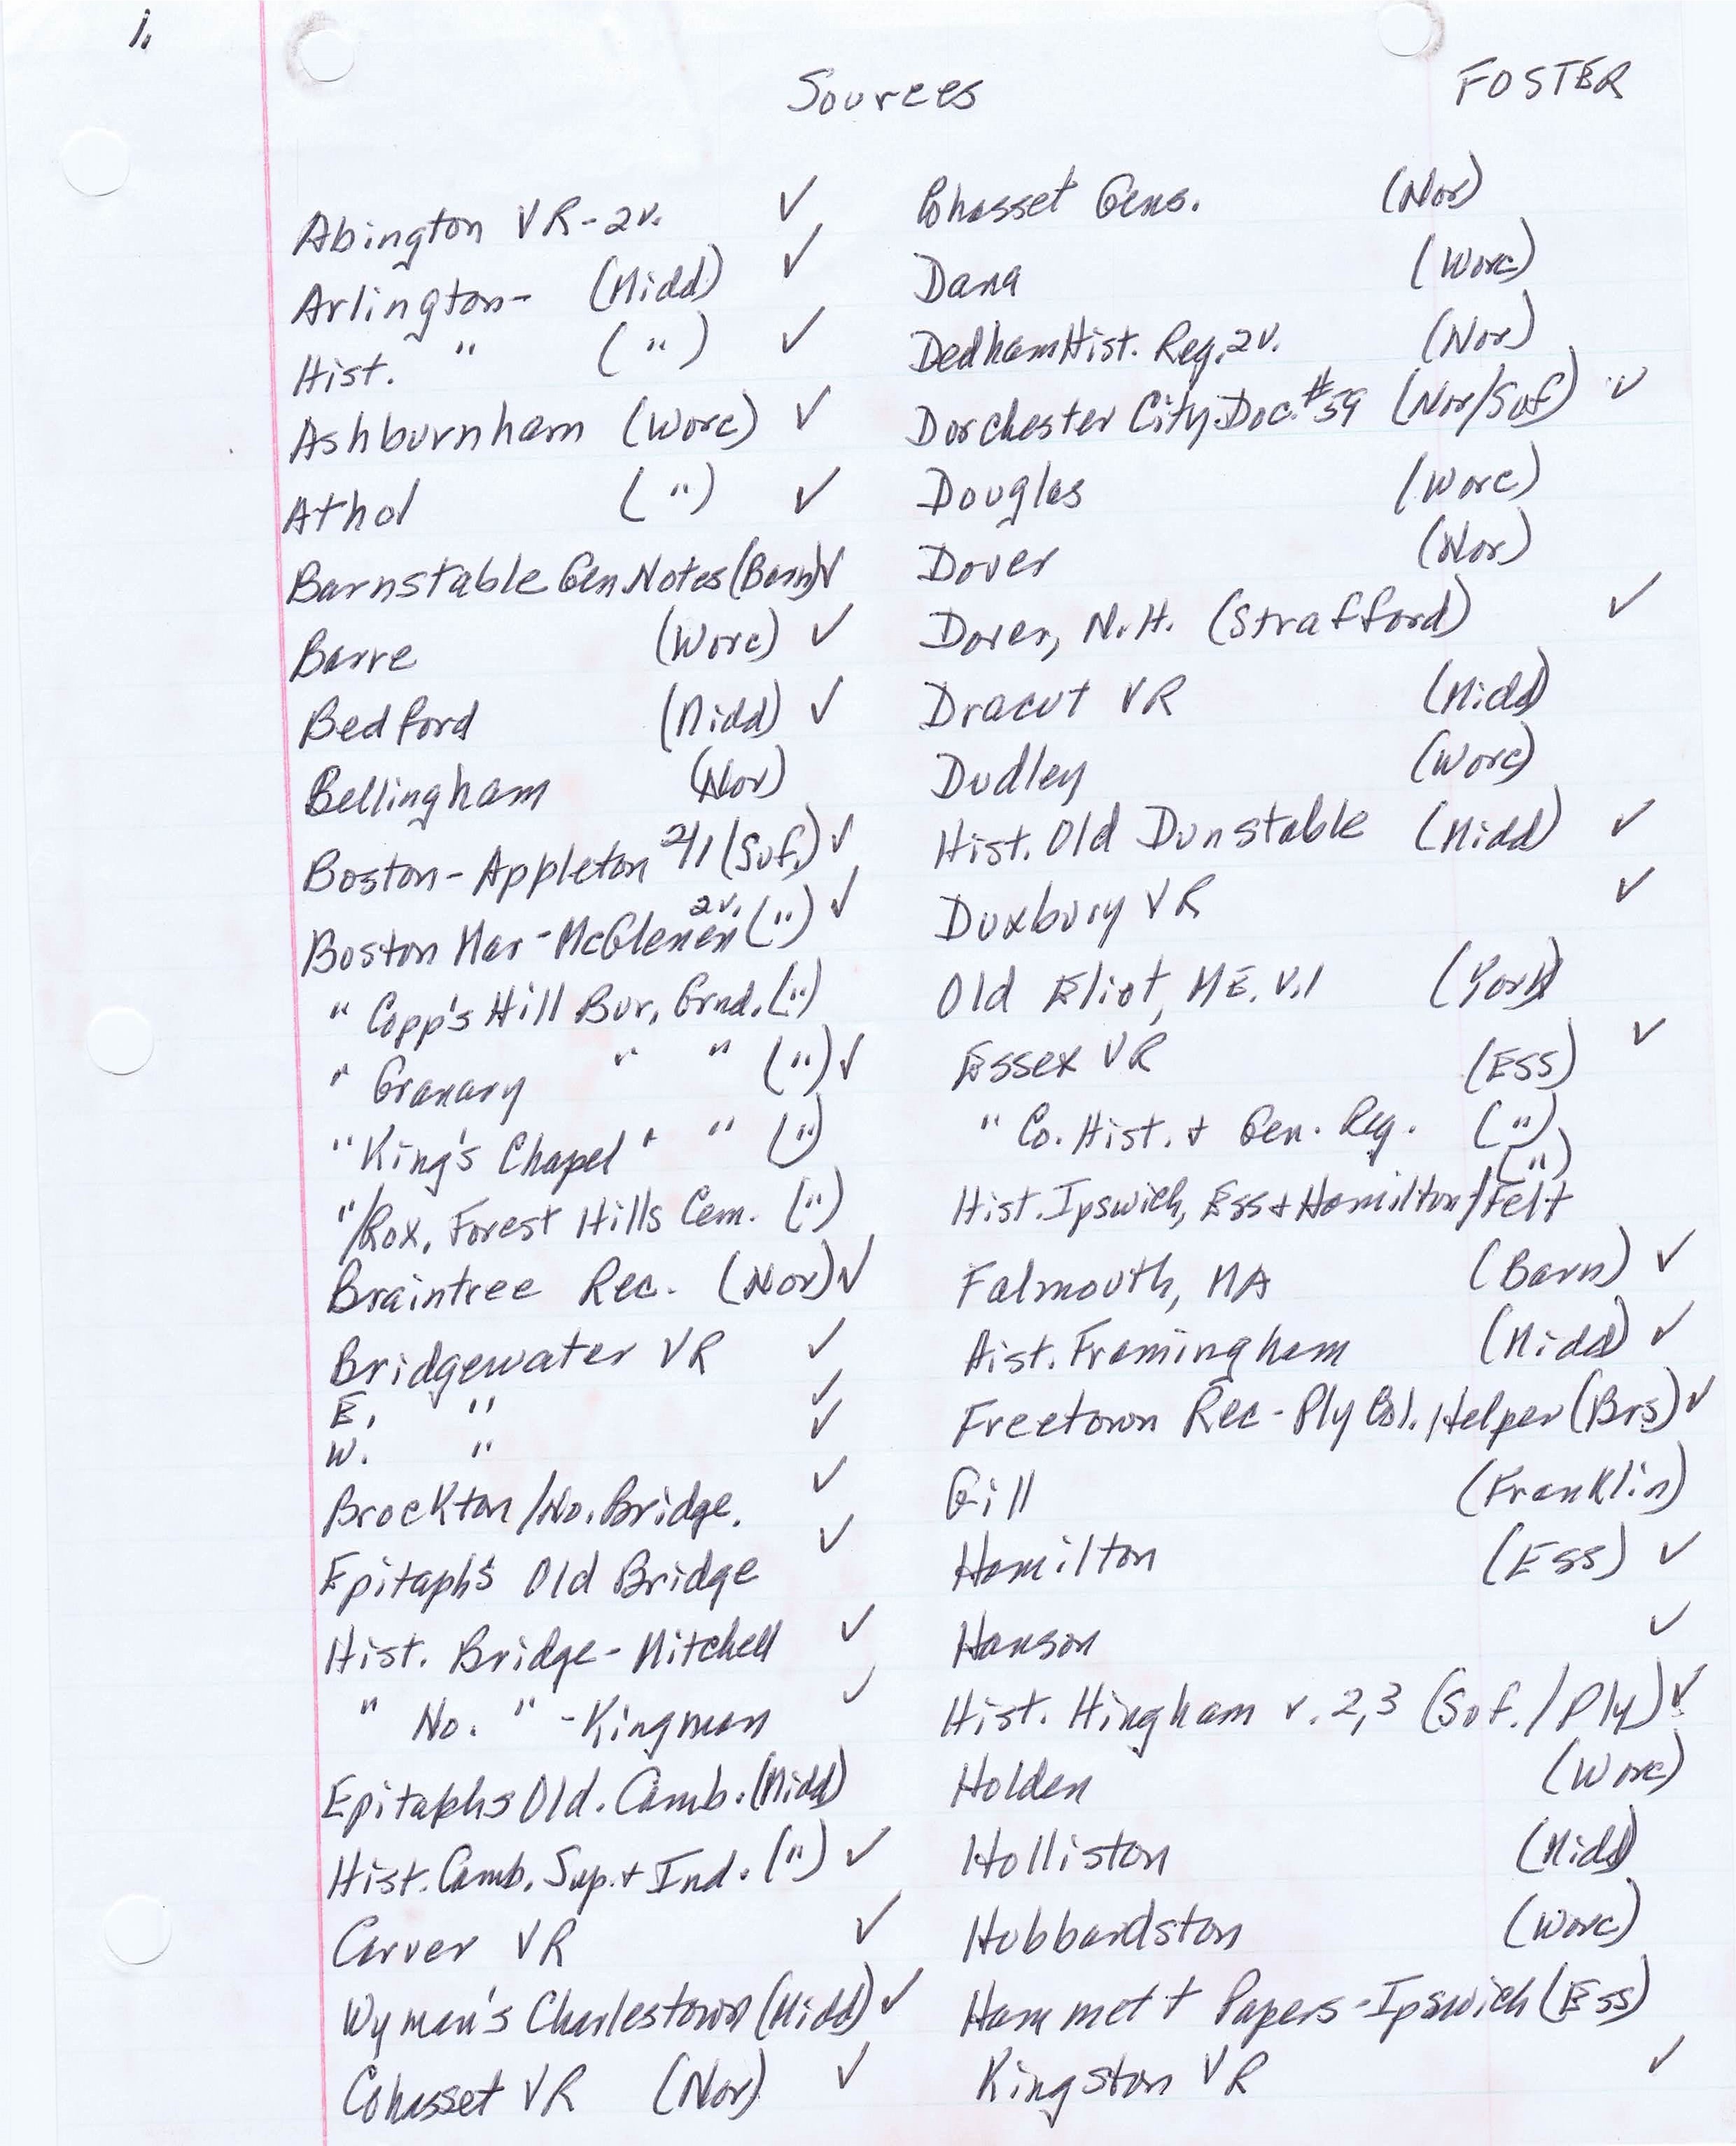 1.
Sources FOSTER
Abington VR-2v. ✓
Arlington- (Midd) ✓
Hist. " (") ✓
Ashburnham (Worc) ✓
Athol (") ✓
Barnstable Gen. Notes (Barn) ✓
Barre (Worc) ✓
Bedford (Midd) ✓
Bellingham (Nor)
Boston-Appleton (Suf.) ✓
Boston Mar-McGlenen 2v. (") ✓
" Copp's Hill Bur. Grnd. (")
" Granary " " (") ✓
" King's Chapel " " (")
"/Rox. Forest Hills Cem. (")
Braintree Rec. (Nor) ✓
Bridgewater VR ✓
E. " ✓
W. " ✓
Brockton/No. Bridge. ✓
Epitaphs Old Bridge ✓
Hist. Bridge-Mitchell ✓
" No. " -Kingman ✓
Epitaphs Old. Camb. (Midd)
Hist. Camb. Sup. + Ind. (") ✓
Carver VR ✓
Wyman's Charlestown (Midd) ✓
Cohasset VR (Nor) ✓
Cohasset Gens. (Nor)
Dana (Worc)
Dedham Hist. Reg. 2v. (Nor)
Dorchester City Doc. #59 (Nor/Suf) ✓
Douglas (Worc)
Dover (Nor)
Dover, N.H. (Strafford) ✓
Dracut VR (Midd)
Dudley (Worc)
Hist. Old Dunstable (Midd) ✓
Duxbury VR ✓
Old Eliot, ME. v.1 (York)
Essex VR (Ess) ✓
" Co. Hist. + Gen. Reg. (")
Hist. Ipswich, Ess + Hamilton/Felt (")
Falmouth, MA (Barn) ✓
Hist. Framingham (Midd) ✓
Freetown Rec-Ply Col. Helper (Brs) ✓
Gill (Franklin)
Hamilton (Ess) ✓
Hanson ✓
Hist. Hingham v. 2,3 (Suf./Ply) ✓
Holden (Worc)
Holliston (Midd)
Hubbardston (Worc)
Hammett Papers-Ipswich (Ess)
Kingston VR ✓